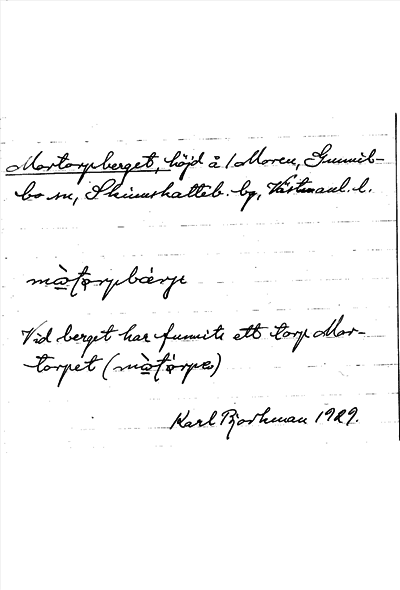 Mortorpberget, höjd å /Moren, Gunnil-
bo sn, Skinnskatteb. bg, Västmanl. l.
mò̠torpbærje
Vid berget har funnits ett torp Mor-
torpet (mò̠tòrpe)
Karl Bjorkman 1929.